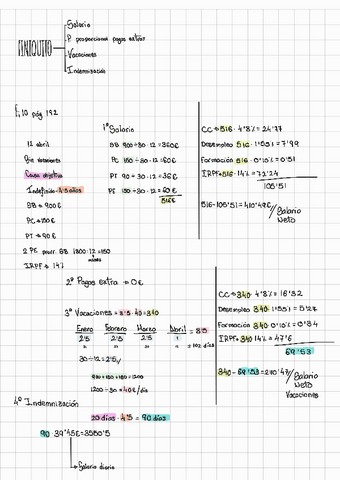 FINIQUITO
Salario
P proporcional pagas extras
Vacaciones
Indemnización
Ej 10 pág 192
12 abril
Sin vacaciones
Causa objetiva
Indefinido 4'5 años
SB = 900 €
PC = 150 €
PT = 90 €
2 PE prorr. SB 1800:12 = 150
IRPF = 14%
1º Salario
SB 900 ÷ 30 · 12 = 360 €
PC 150 ÷ 30 · 12 = 60 €
PT 90 ÷ 30 · 12 = 36 €
PE 150 ÷ 30 · 12 = 60 €
516 €
CC → 516 · 4'8% = 24'77
Desempleo 516 · 1'55% = 7'99
Formación 516 · 0'10% = 0'51
IRPF → 516 · 14% = 72'24
105'51
516 - 105'51 = 410'49 € // Salario
Neto
2º Pagas extra → 0 €
3º Vacaciones = 8'5 · 40 = 340
Enero Febrero Marzo Abril = 8'5
2'5 2'5 2'5 1
= 102 días
30 ÷ 12 = 2'5 //
900 + 150 + 150 = 1200
1200 ÷ 30 = 40 € / día
CC → 340 · 4'8% = 16'32
Desempleo 340 · 1'55% = 5'27
Formación 340 · 0'10% = 0'34
IRPF → 340 · 14% = 47'6
69'53
340 - 69'53 = 270'47 // Salario
Neto
Vacaciones
4º Indemnización
20 días · 4'5 = 90 días
90 · 39'45 € = 3550'5
Salario diario